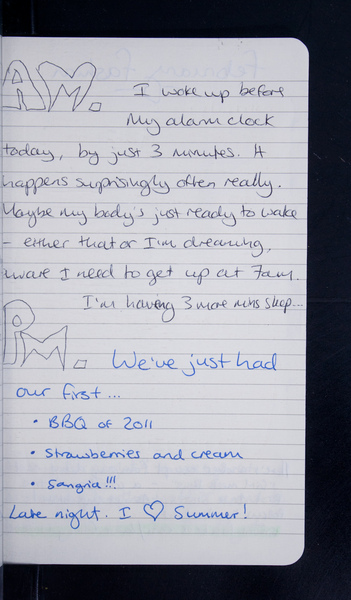 AM. I woke up before
my alarm clock
today, by just 3 minutes. It
happens surprisingly often really.
Maybe my body's just ready to wake
- either that or I'm dreaming,
aware I need to get up at 7am.
I'm having 3 more mins sleep...
PM. We've just had
our first...
• BBQ of 2011
• Strawberries and cream
• Sangria!!!
Late night. I ♡ Summer!